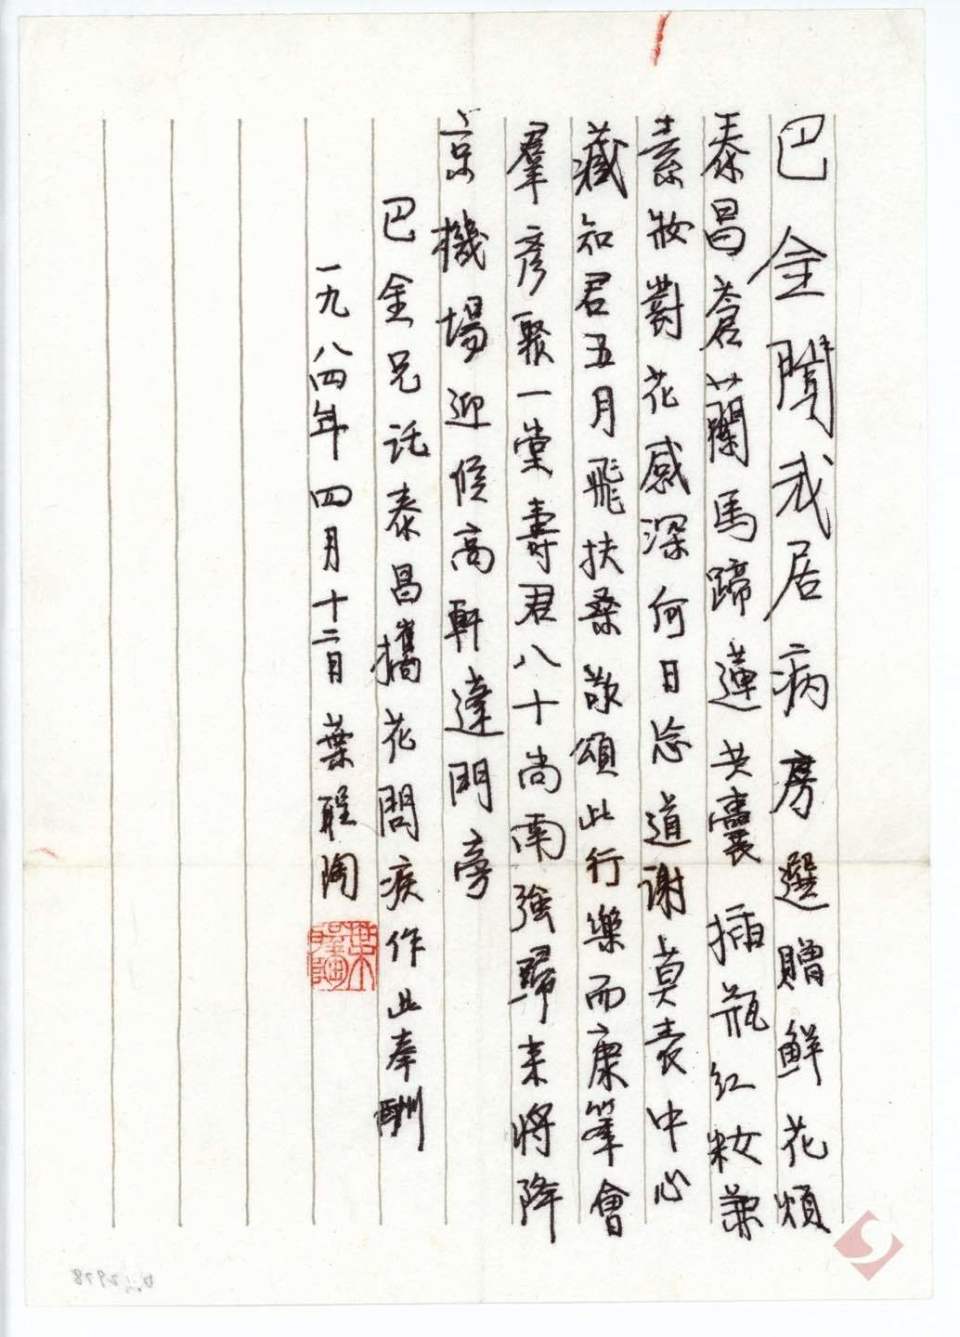 巴金聞我居病房選贈鮮花煩
泰昌蒼蘭馬蹄蓮共囊插瓶紅妝兼
素妝對花感深何日忘道謝莫表中心
藏知君五月飛扶桑敬頌此行樂而康筆會
羣彥聚一堂壽君八十尚南強歸来將降
京機場迎候高軒達門旁
巴金兄託泰昌攜花問疾作此奉酬
一九八四年四月十二日葉聖陶
葉聖陶印